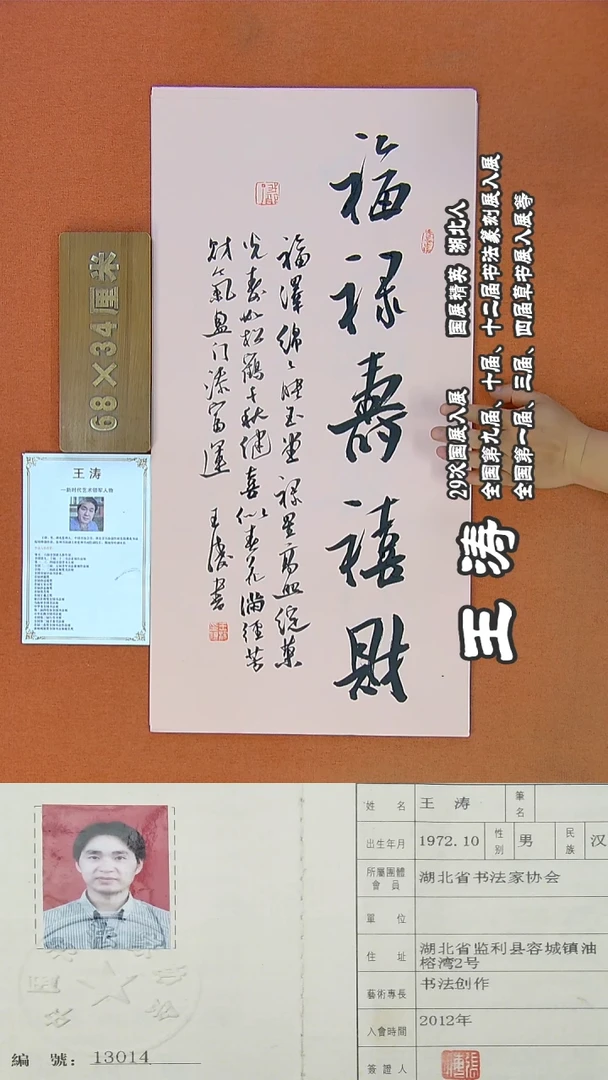 福禄壽禧財
福澤绵々映玉堂禄星高照绽華
光寿如松鶴千秋健喜似春花滿徑芳
财氣盈门添富運 王涛書
68×34厘米
王涛
—新时代艺术领军人物
王涛
29次国展入展 国展精英 湖北人
全国第九届、十届、十二届书法篆刻展入展
全国第一届、三届、四届草书展入展等
姓 名 王 涛 筆名
出生年月 1972.10 性别 男 民族 汉
所屬團體會員 湖北省书法家协会
單 位
住 址 湖北省监利县容城镇油
榕湾2号
藝術專長 书法创作
入會時間 2012年
簽證人
編 號：13014